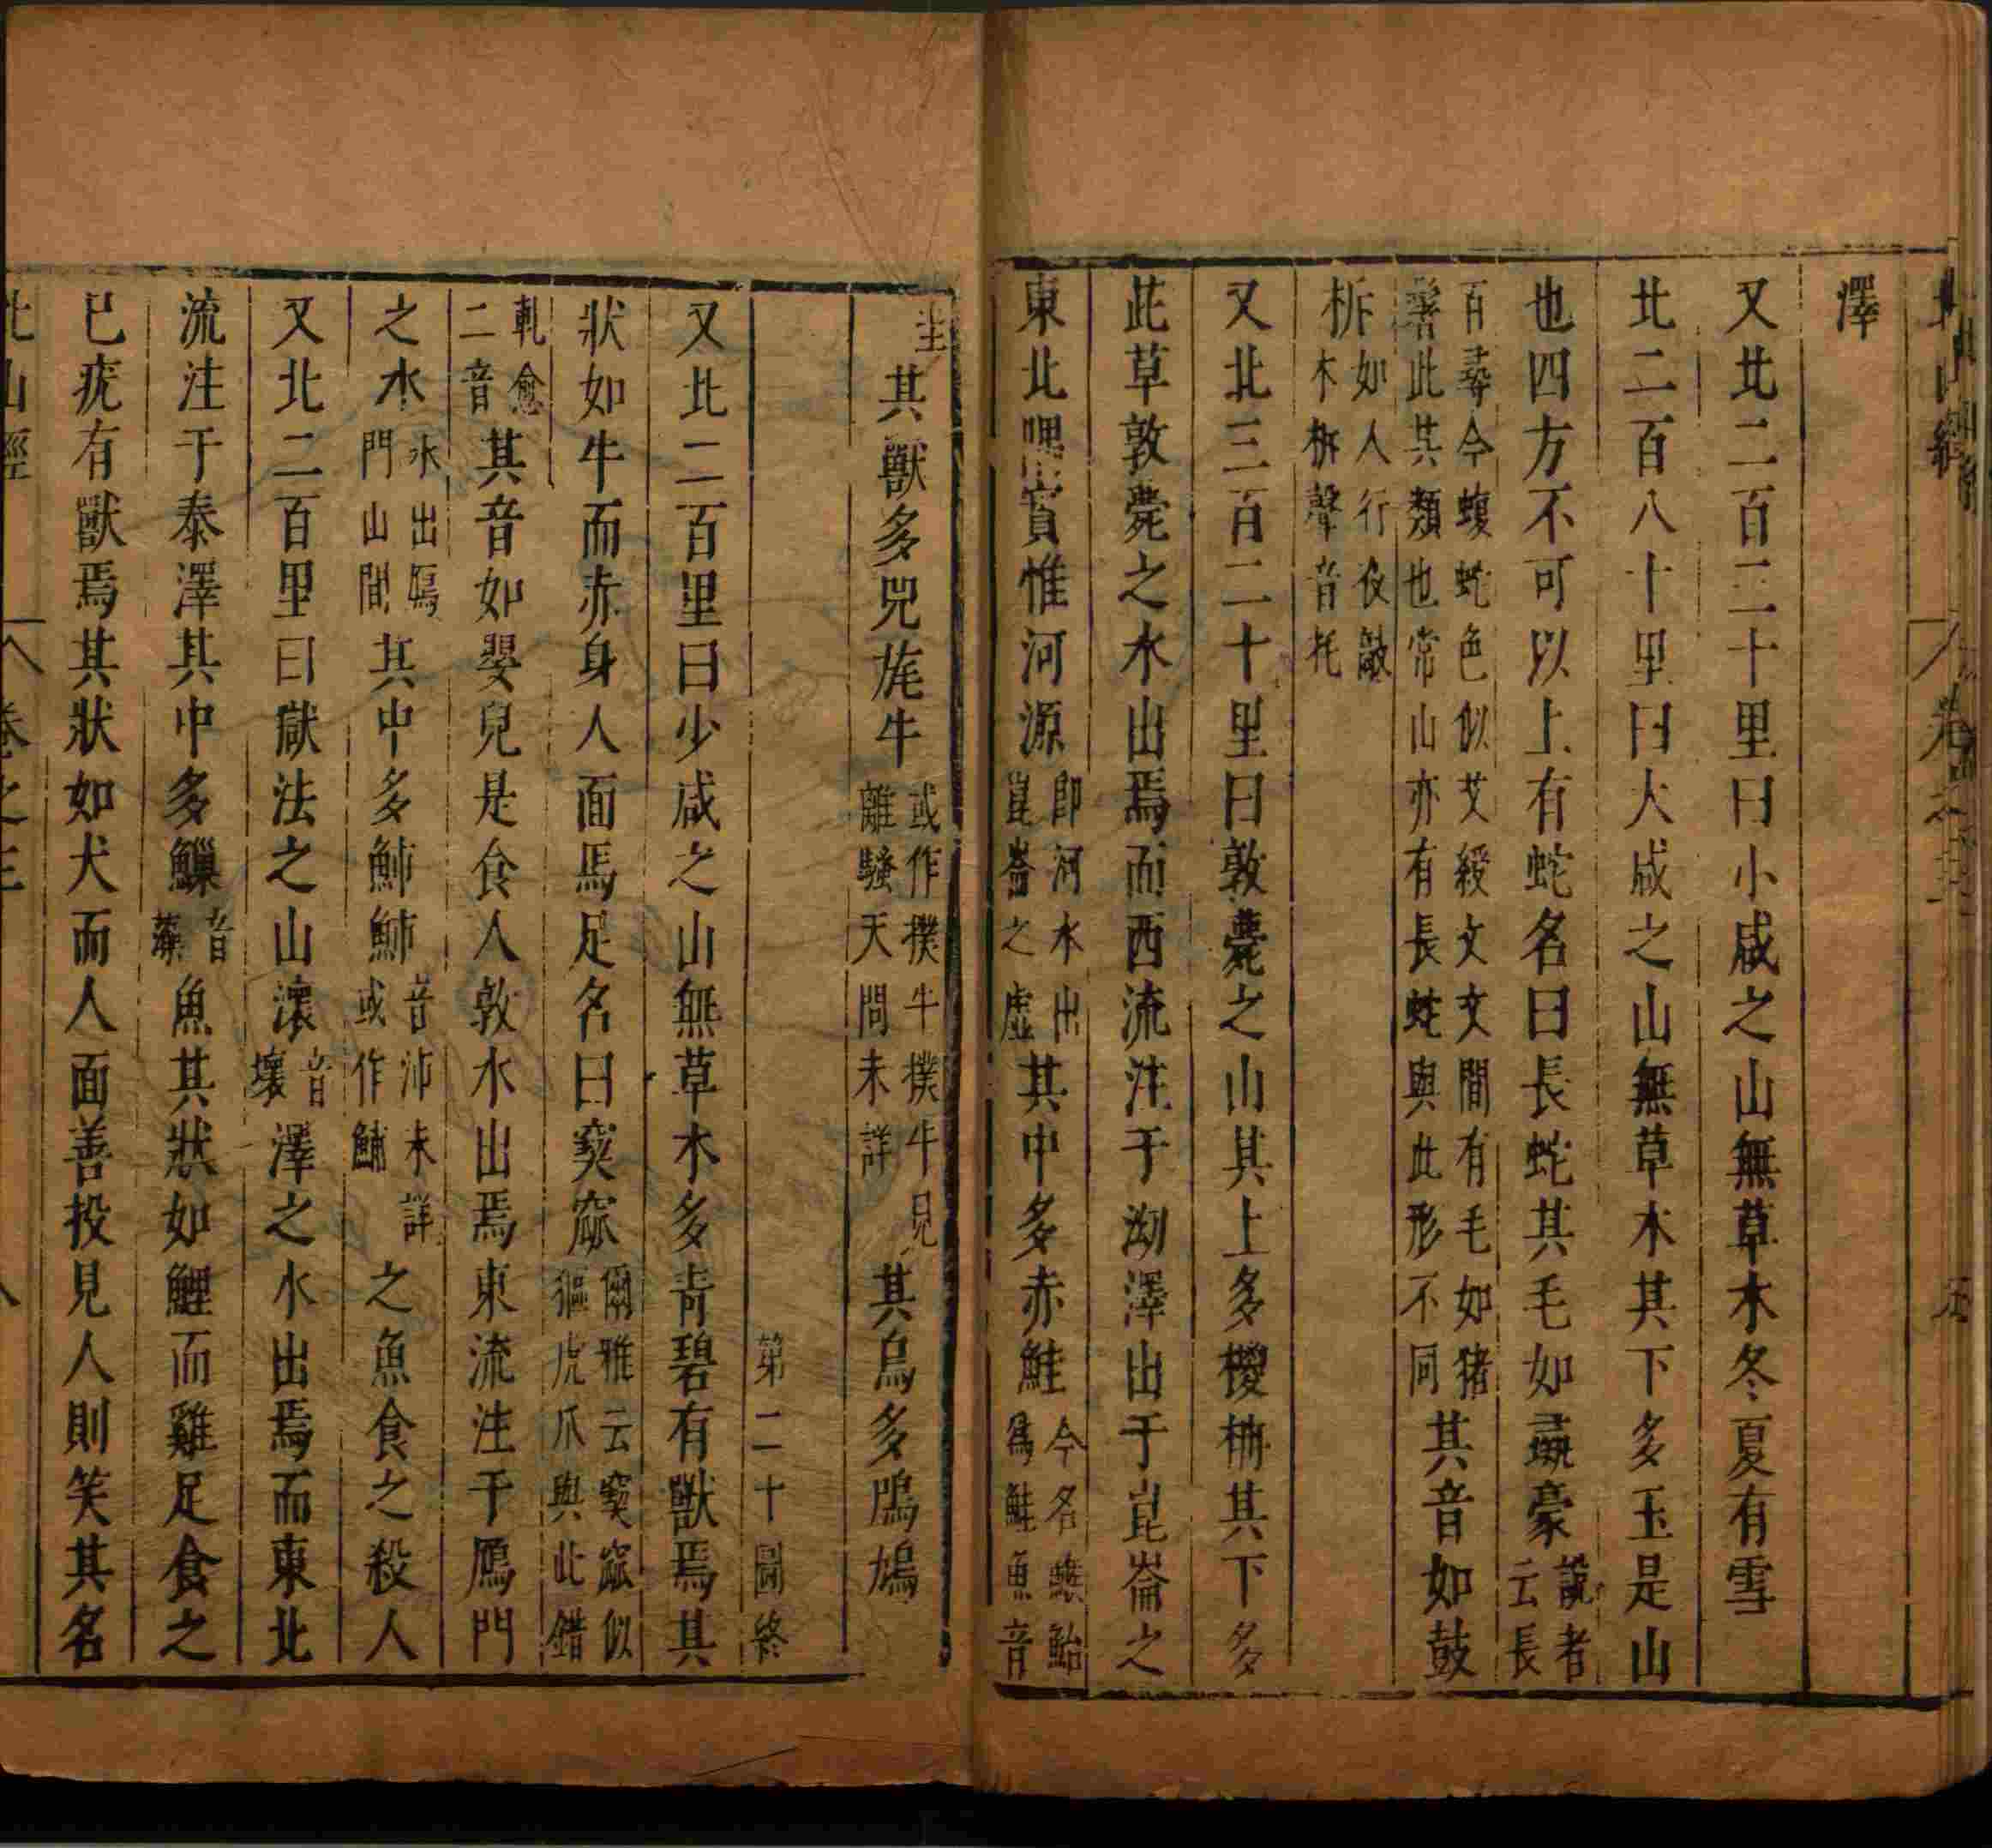 澤
又北二百二十里曰小咸之山無草木冬夏有雪
北二百八十里曰大咸之山無草木其下多玉是山
也四方不可以上有蛇名曰長蛇其毛如彘豪說者云長
百尋今蝮蛇色似艾綬文文間有毛如猪鬐此其類也常山亦有長蛇與此形不同其音如鼓
柝如人行夜敲木柝聲音托
又北三百二十里曰敦薨之山其上多椶枏其下多
茈草敦薨之水出焉而西流注于泑澤出于崑崙之
東北隅實惟河源即河水出崑崙之虛其中多赤鮭今名鯸鮐為鮭魚音
圭其獸多兕旄牛或作㺉牛㺉牛見離騷天問未詳其鳥多鳲鳩
第二十圖終
又北二百里曰少咸之山無草木多青碧有獸焉其
狀如牛而赤身人面馬足名曰窫窳爾雅云窫窳似貙虎爪與此錯
軋愈二音其音如嬰兒是食人敦水出焉東流注于鴈門
之水水出鴈門山間其中多䰽䰽音沛未詳或作鯆之魚食之殺人
又北二百里曰獄法之山瀤音壞澤之水出焉而東北
流注于泰澤其中多䲃音藻魚其狀如鯉而雞足食之
已疣有獸焉其狀如犬而人面善投見人則笑其名
北山經 卷之三